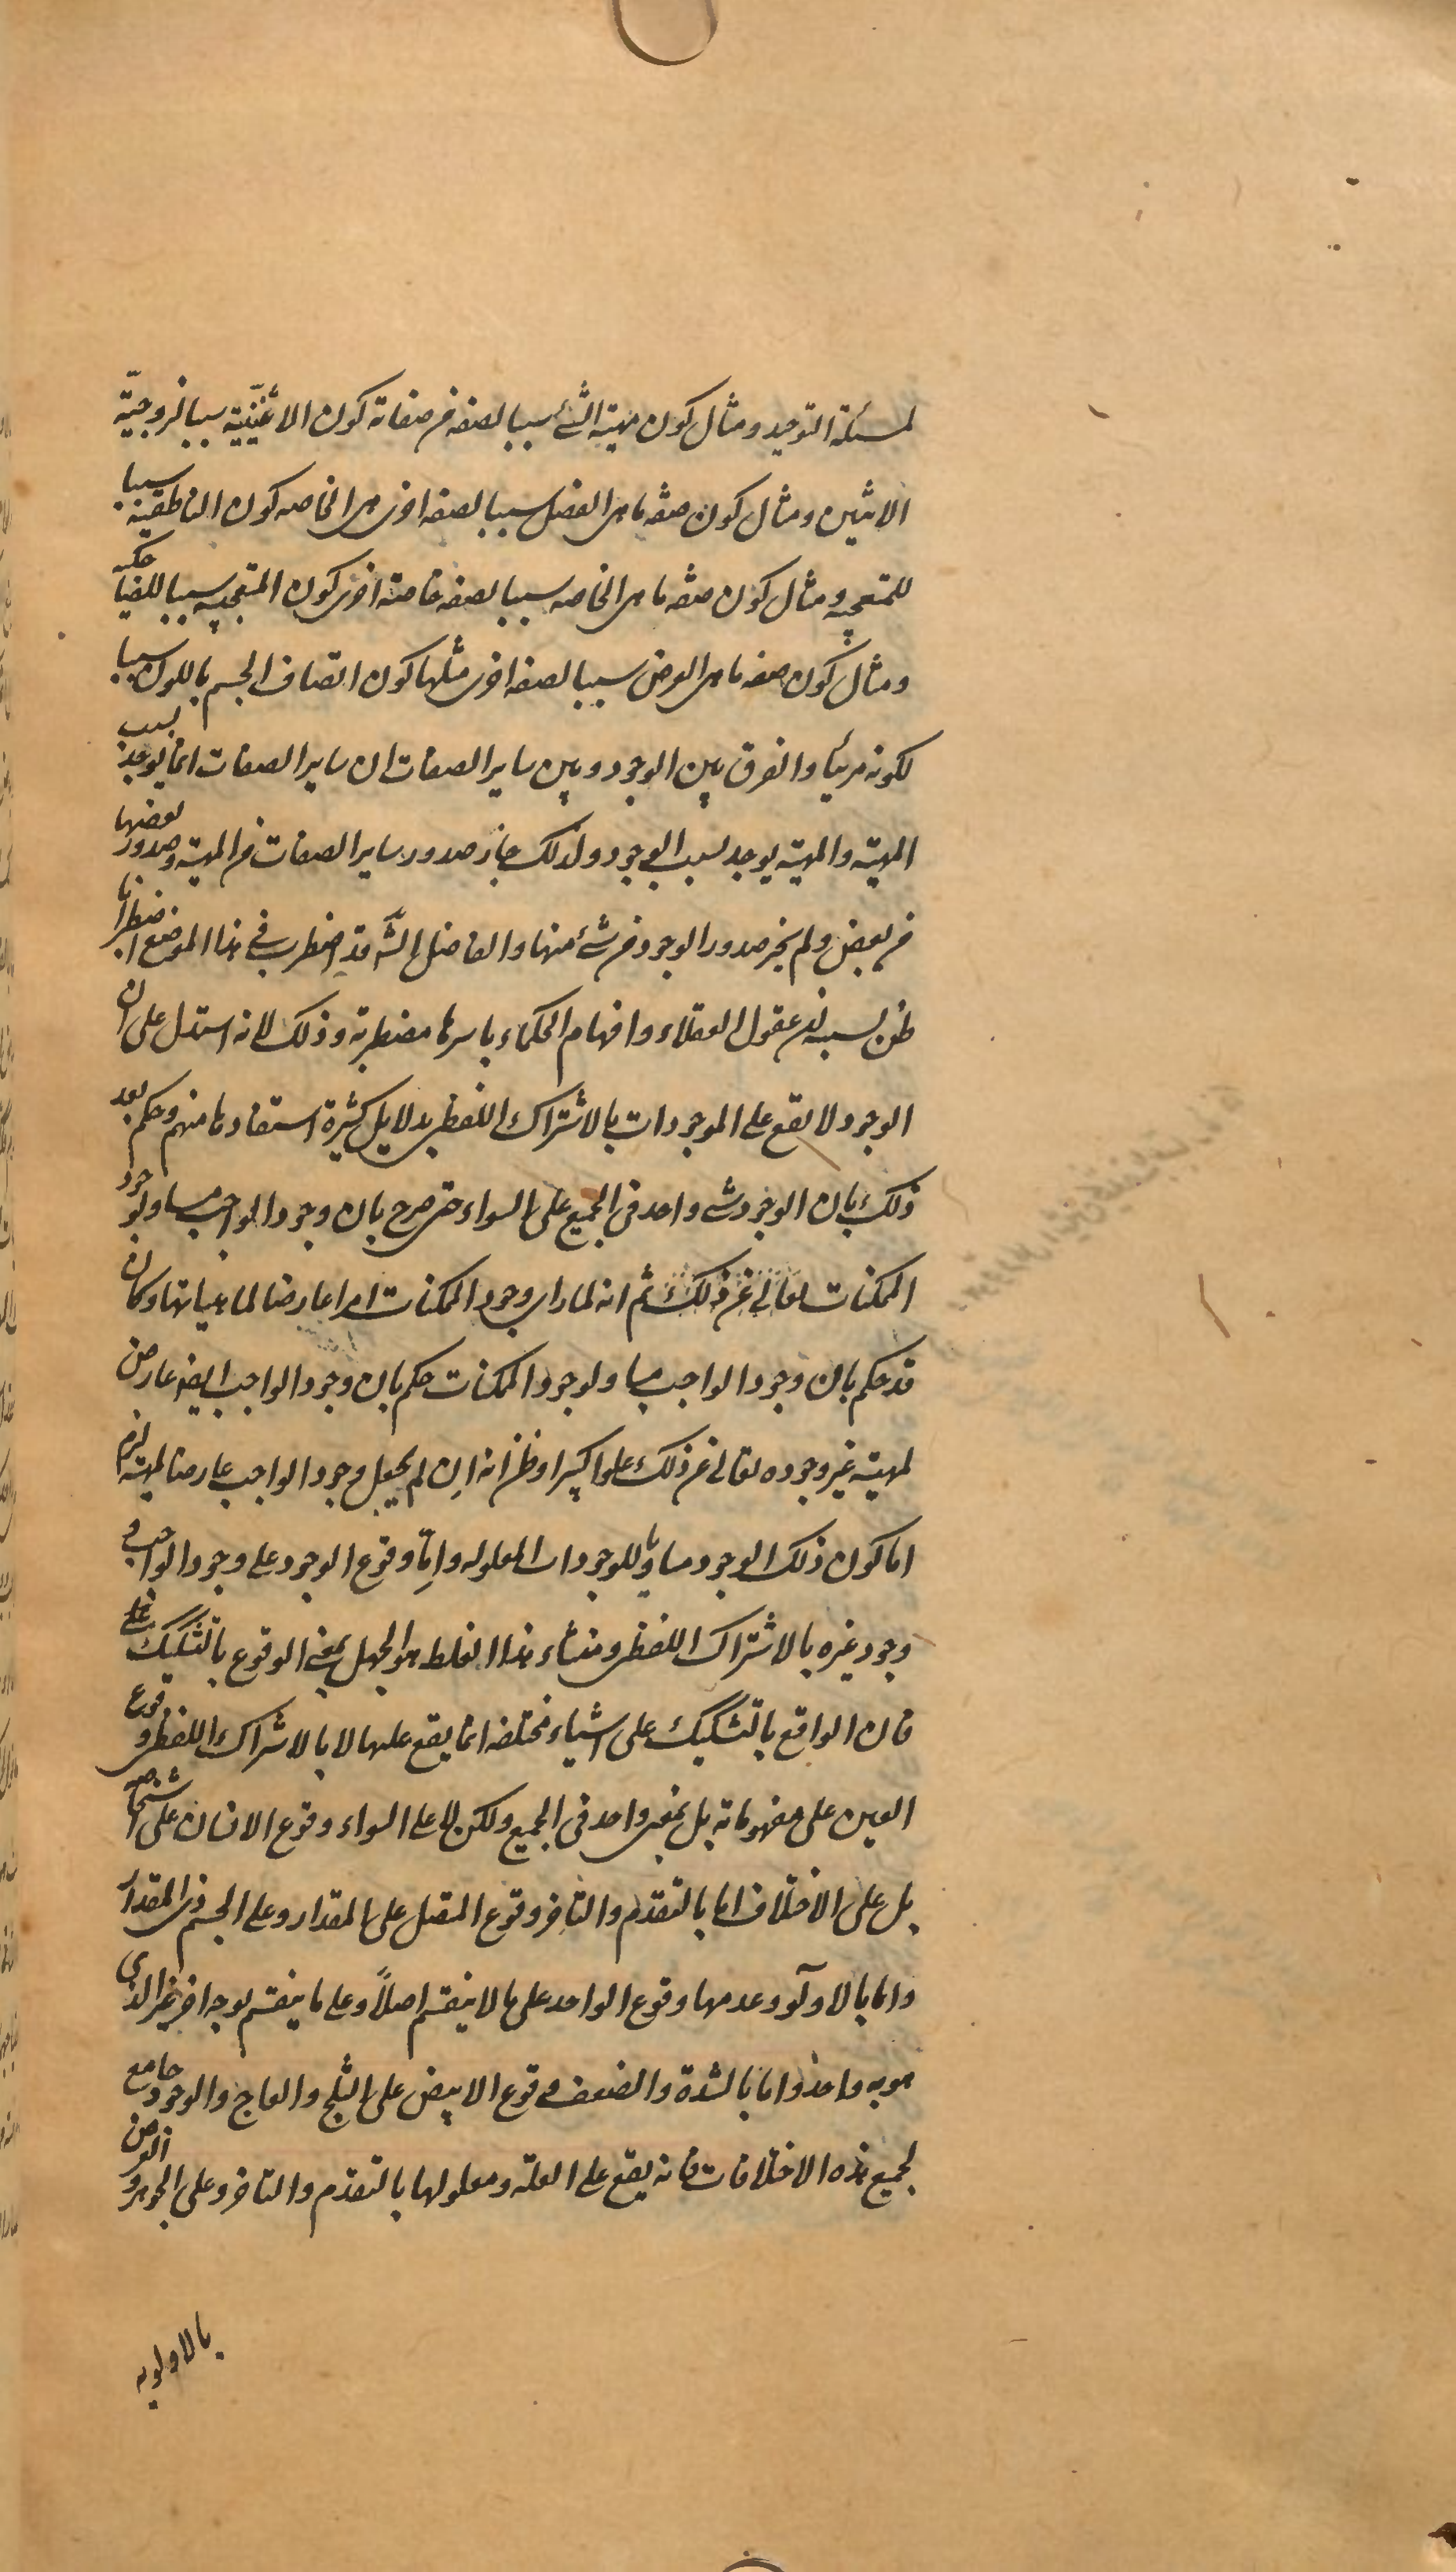 لمسئلة التوحيد ومثال كون مهية الشئ سببا لصفة من صفاته كون الاثنينيّة سببا لزوجيّة
الاثنين ومثال كون صفة ما هى الفصل سببا لصفة اخرى هى الخاصه كون الناطقية سببا
للمتعجبيه ومثال كون صفة ما هى الخاصه سببا لصفة خاصة اخرى كون المتعجبيه سببا للضاحكيه
ومثال كون صفه ما هى العرض سببا لصفه اخرى مثلها كون اتصاف الجسم باللون سببا
لكونه مرئيا والفرق بين الوجود وبين ساير الصفات ان ساير الصفات انما يوجد بسبب
المهية والمهية يوجد بسبب الوجود ولذلك جاز صدور ساير الصفات من المهية وصدور بعضها
من بعض ولم يجز صدور الوجود من شئ منها والفاضل الشّه قد اضطرب فى هذا الموضع اضطرابا
ظن بسببه ان عقول العقلاء وافهام الحكماء باسرها مضطربة وذلك لانه استدل على ان
الوجود لا يقع على الموجودات بالاشتراك اللفظى بدلايل كثيرة استفادها منهم وحكم بعد
ذلك بان الوجود شى واحد فى الجميع على السواء حتى صرح بان وجود الواجب مساو لوجود
الممكنات تعالى عن ذلك ثم انه لما راى وجود الممكنات امرا عارضا لماهياتها وكان
قد حكم بان وجود الواجب مساو لوجود الممكنات حكم بان وجود الواجب ايضه عارض
لمهية غير وجوده تعالى عن ذلك علوا كبيرا وظن انه ان لم يجعل وجود الواجب عارضا لمهية لزم
اما كون ذلك الوجود مساويا للوجودات المعلوله وامّا وقوع الوجود على وجود الواجب و
وجود غيره بالاشتراك اللفظى ومنشاء هذا الغلط هو الجهل بمعنى الوقوع بالتشكيك على
فان الواقع بالتشكيك على اشياء مختلفه انما يقع عليها لا بالاشتراك اللفظى وقوع
العين على مفهوماته بل بمعنى واحد فى الجميع ولكن لا على السواء وقوع الانسان على اشخاصه
بل على الاختلاف اما بالتقدم والتاخر وقوع المتصل على المقدار وعلى الجسم ذى المقدار
واما بالاولّو وعدمها وقوع الواحد على ما لا ينقسم اصلاً وعلى ما ينقسم بوجه اخر غير الذى
هو به واحد واما بالشدة والضعف وقوع الابيض على الثلج والعاج والوجود جامع
لجميع هذه الاختلافات فانه يقع على العلة ومعلولها بالتقدم والتاخر وعلى الجوهر والعرض
بالاولويه